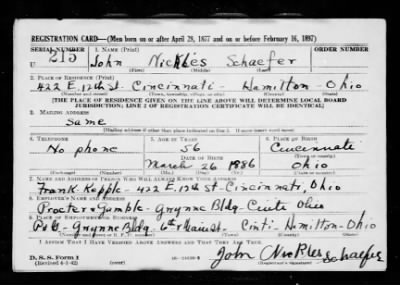 REGISTRATION CARD—(Men born on or after April 28, 1877 and on or before February 16, 1897)
SERIAL NUMBER 1. NAME (Print) ORDER NUMBER
U 215 John Nickles Schaefer
(First) (Middle) (Last)
2. PLACE OF RESIDENCE (Print)
422 E. 12th St. Cincinnati - Hamilton - Ohio
(Number and street) (Town, township, village, or city) (County) (State)
[THE PLACE OF RESIDENCE GIVEN ON THE LINE ABOVE WILL DETERMINE LOCAL BOARD
JURISDICTION; LINE 2 OF REGISTRATION CERTIFICATE WILL BE IDENTICAL]
3. MAILING ADDRESS
Same
[Mailing address if other than place indicated on line 2. If same insert word same]
4. TELEPHONE 5. AGE IN YEARS 6. PLACE OF BIRTH
No phone 56 Cincinnati
DATE OF BIRTH (Town or county)
March 26 1886 Ohio
(Mo.) (Day) (Yr.) (State or country)
7. NAME AND ADDRESS OF PERSON WHO WILL ALWAYS KNOW YOUR ADDRESS
Frank Kepple - 422 E. 12th St - Cincinnati, Ohio
8. EMPLOYER'S NAME AND ADDRESS
Procter & Gamble - Gwynne Bldg - Ohio
9. PLACE OF EMPLOYMENT OR BUSINESS
P & G - Gwynne Bldg 6th & Main St - Cinti - Hamilton - Ohio
(Number and street or R. F. D. number) (Town) (County) (State)
I AFFIRM THAT I HAVE VERIFIED ABOVE ANSWERS AND THAT THEY ARE TRUE.
D. S. S. Form 1
(Revised 4-1-42) (over) John Nickles Schaefer
(Registrant's signature)